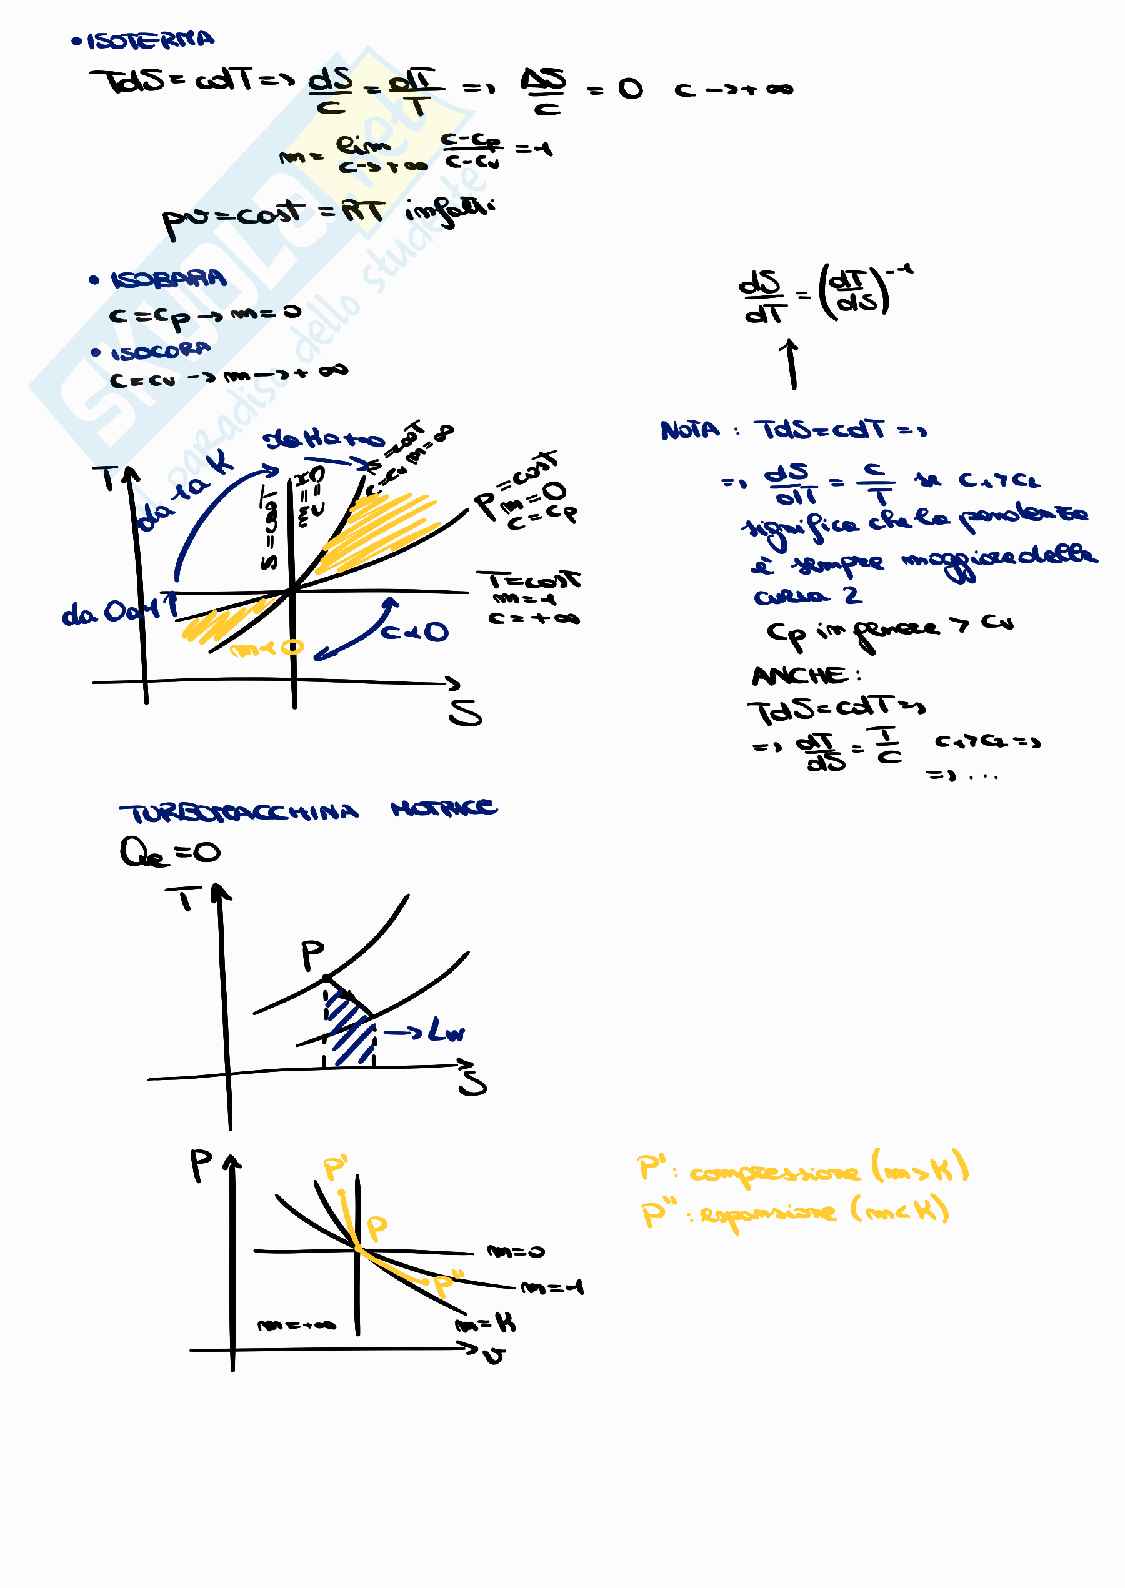 • ISOTERMA
TdS = cdT => dS/c = dT/T => ΔS/c = 0 c → +∞
m = lim c→+∞ (c-cp)/(c-cv) = 1
pv = cost = RT infatti
• ISOBARA
c = cp → m = 0
• ISOCORA
c = cv → m → +∞
dS/dT = (dT/dS)^-1
NOTA: TdS = cdT =>
=> dS/dT = c/T se c1 > c2
significa che la pendenza
è sempre maggiore della
curva 2
cp in genere > cv
ANCHE:
TdS = cdT =>
=> dT/dS = T/c c1 > c2 =>
=> ...
T
da 1 a K
da K a +∞
S = cost
m = K
c = 0
c = cv m = ∞
P = cost
m = 0
c = cp
T = cost
m = 1
c = +∞
da 0 a 1
m < 0
c < 0
S
TURBOMACCHINA MOTRICE
Qe = 0
T
P
→ Lw
S
P
P'
P
P''
m = 0
m = 1
m = K
m = +∞
v
P': compressione (m > K)
P'': espansione (m < K)
SKUOLA.net
il paradiso dello studente